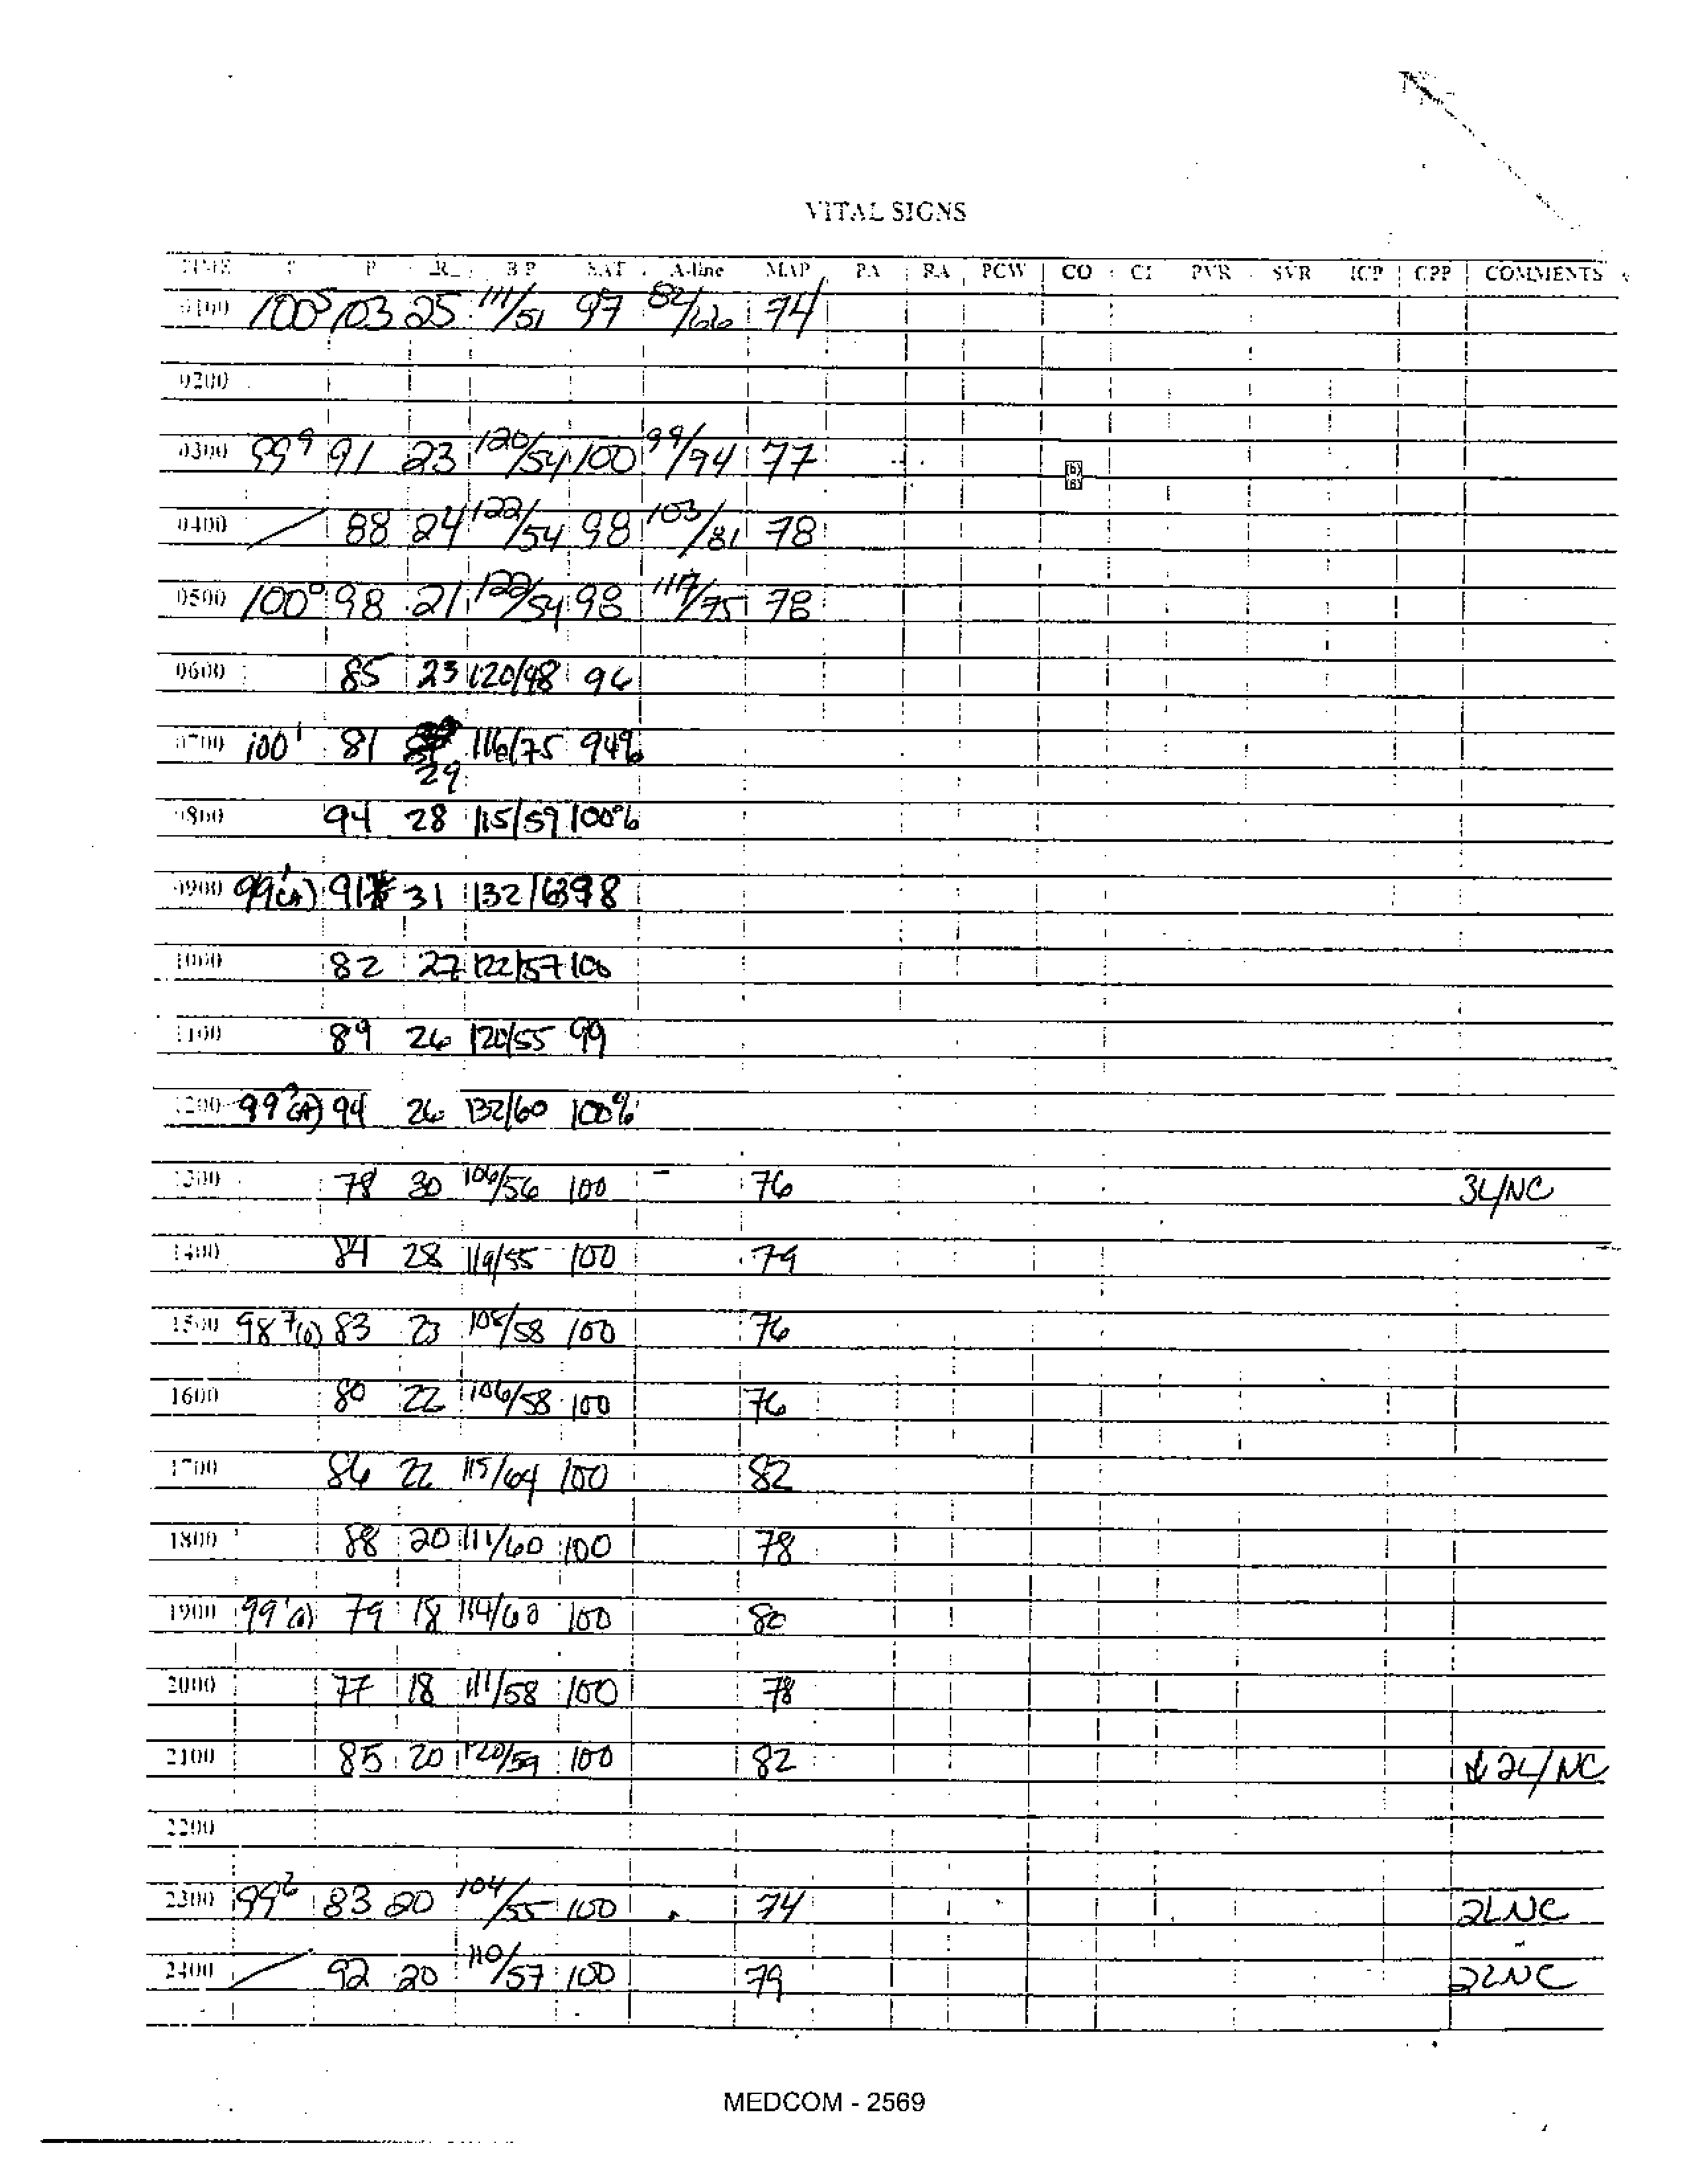 VITAL SIGNS
TIME T P R BP SAT A-line MAP PA RA PCW CO CI PVR SVR ICP CPP COMMENTS
0100 100⁵ 103 25 111/51 97 82/66 74
0200
0300 99⁹ 91 23 120/54 100 99/94 77
(b)
(6)
0400 / 88 24 122/54 98 103/81 78
0500 100⁰ 98 21 122/54 98 117/75 78
0600 85 23 120/48 96
0700 100¹ 81 116/75 94%
29
0800 94 28 115/59 100%
0900 99¹(A) 91 31 132/63 98
1000 82 27 122/57 100
1100 89 26 120/55 99
1200 99²(A) 94 26 132/60 100%
1300 78 30 106/56 100 - 76 3L/NC
1400 84 28 119/55 100 79
1500 98⁷(0) 83 23 108/58 100 76
1600 80 22 106/58 100 76
1700 86 22 115/64 100 82
1800 88 20 111/60 100 78
1900 99¹ 79 18 114/60 100 80
2000 77 18 111/58 100 78
2100 85 20 120/59 100 82 ↓2L/NC
2200
2300 99² 83 20 104/55 100 74 2LNC
2400 / 92 20 110/57 100 79 2LNC
MEDCOM - 2569